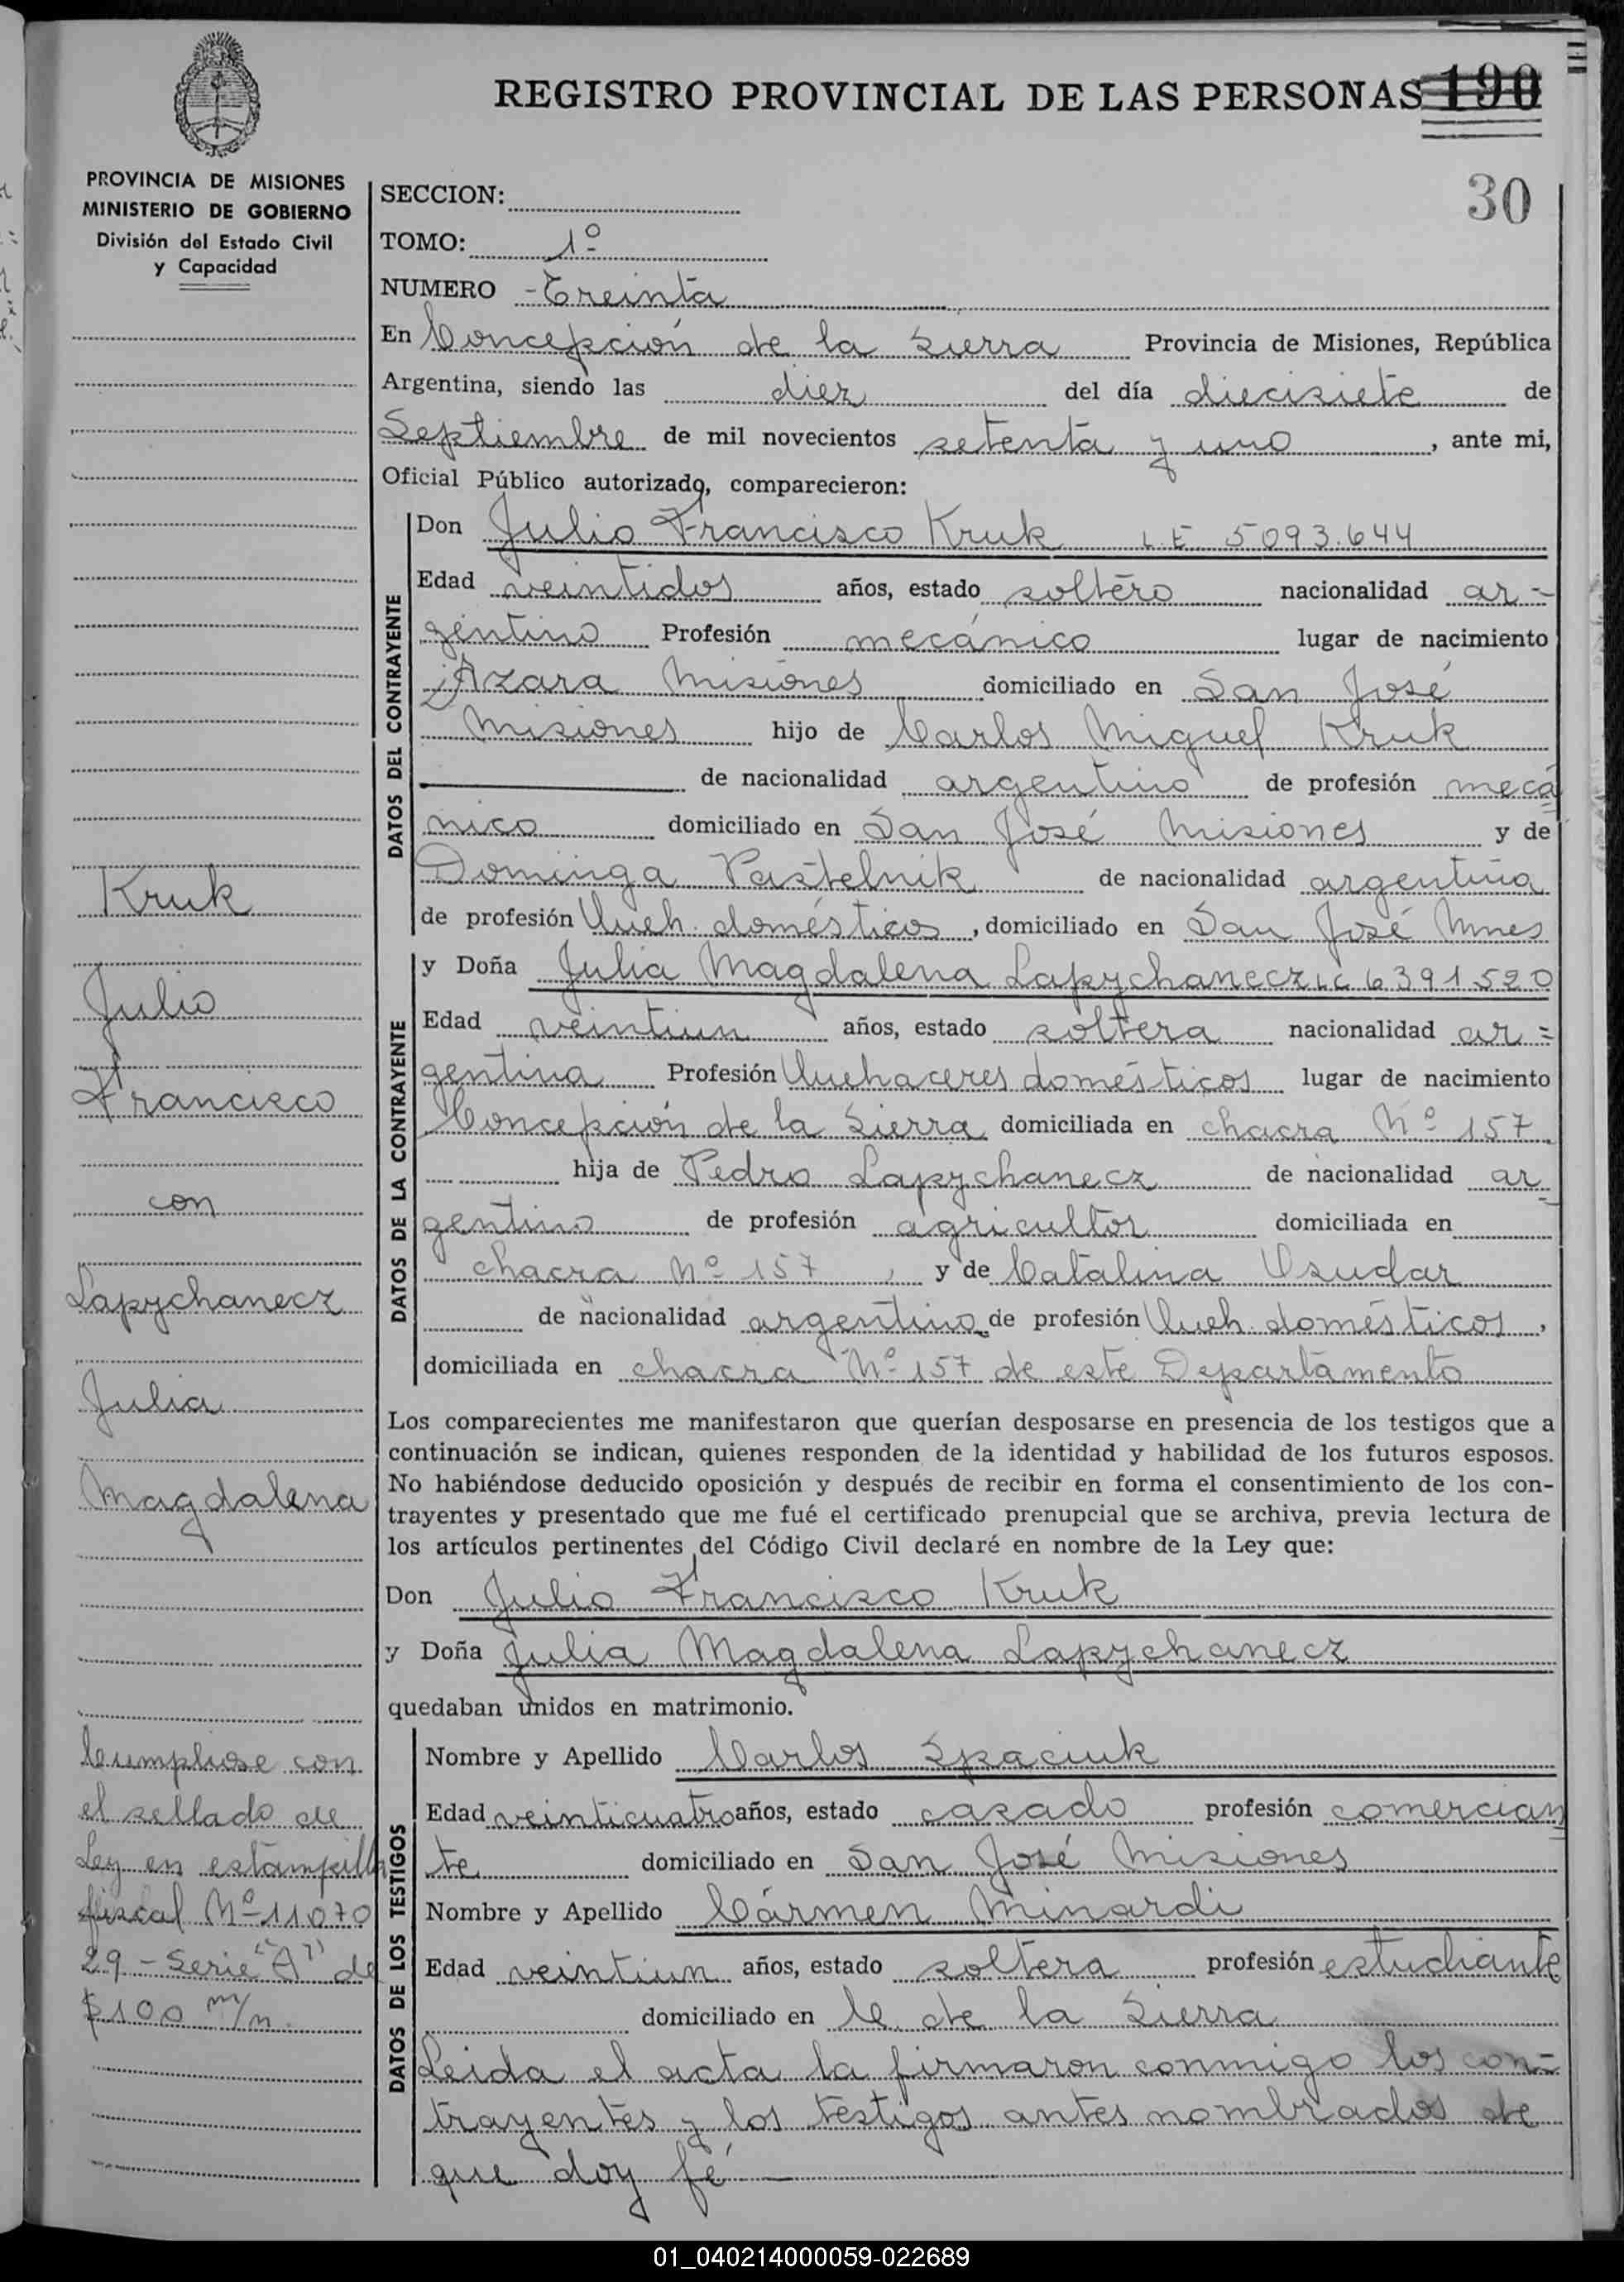 REGISTRO PROVINCIAL DE LAS PERSONAS 190
30
PROVINCIA DE MISIONES
MINISTERIO DE GOBIERNO
División del Estado Civil
y Capacidad
SECCION:
TOMO: 1º
NUMERO - Treinta
En Concepción de la Sierra Provincia de Misiones, República
Argentina, siendo las diez del día diecisiete de
Septiembre de mil novecientos setenta y uno, ante mi,
Oficial Público autorizado, comparecieron:
DATOS DEL CONTRAYENTE
Don Julio Francisco Kruk L.E 5093.644
Edad veintidos años, estado soltero nacionalidad ar-
gentino Profesión mecánico lugar de nacimiento
Azara Misiones domiciliado en San José
Misiones hijo de Carlos Miguel Kruk
de nacionalidad argentino de profesión mecá
nico domiciliado en San José Misiones y de
Dominga Pastelnik de nacionalidad argentina
de profesión Queh. domésticos, domiciliado en San José Mnes
DATOS DE LA CONTRAYENTE
y Doña Julia Magdalena Lapychanecz LC 6391520
Edad veintiun años, estado soltera nacionalidad ar=
gentina Profesión Quehaceres domésticos lugar de nacimiento
Concepción de la Sierra domiciliada en chacra Nº 157
hija de Pedro Lapychanecz de nacionalidad ar
gentino de profesión agricultor domiciliada en
chacra Nº 157, y de Catalina Usudar
de nacionalidad argentina de profesión Queh. domésticos,
domiciliada en chacra Nº 157 de este Departamento
Los comparecientes me manifestaron que querían desposarse en presencia de los testigos que a
continuación se indican, quienes responden de la identidad y habilidad de los futuros esposos.
No habiéndose deducido oposición y después de recibir en forma el consentimiento de los con-
trayentes y presentado que me fué el certificado prenupcial que se archiva, previa lectura de
los artículos pertinentes del Código Civil declaré en nombre de la Ley que:
Don Julio Francisco Kruk
y Doña Julia Magdalena Lapychanecz
quedaban unidos en matrimonio.
DATOS DE LOS TESTIGOS
Nombre y Apellido Carlos Spaciuk
Edad veinticuatro años, estado casado profesión comercian
te domiciliado en San José Misiones
Nombre y Apellido Cármen Minardi
Edad veintiun años, estado soltera profesión estudiante
domiciliado en C. de la Sierra
Leida el acta la firmaron conmigo los con=
trayentes y los testigos antes nombrados de
que doy fé —
Kruk
Julio
Francisco
con
Lapychanecz
Julia
Magdalena
Cumpliose con
el sellado de
Ley en estampilla
fiscal Nº 11070
29 - Serie "A" de
$ 100 m/n.
01_040214000059-022689